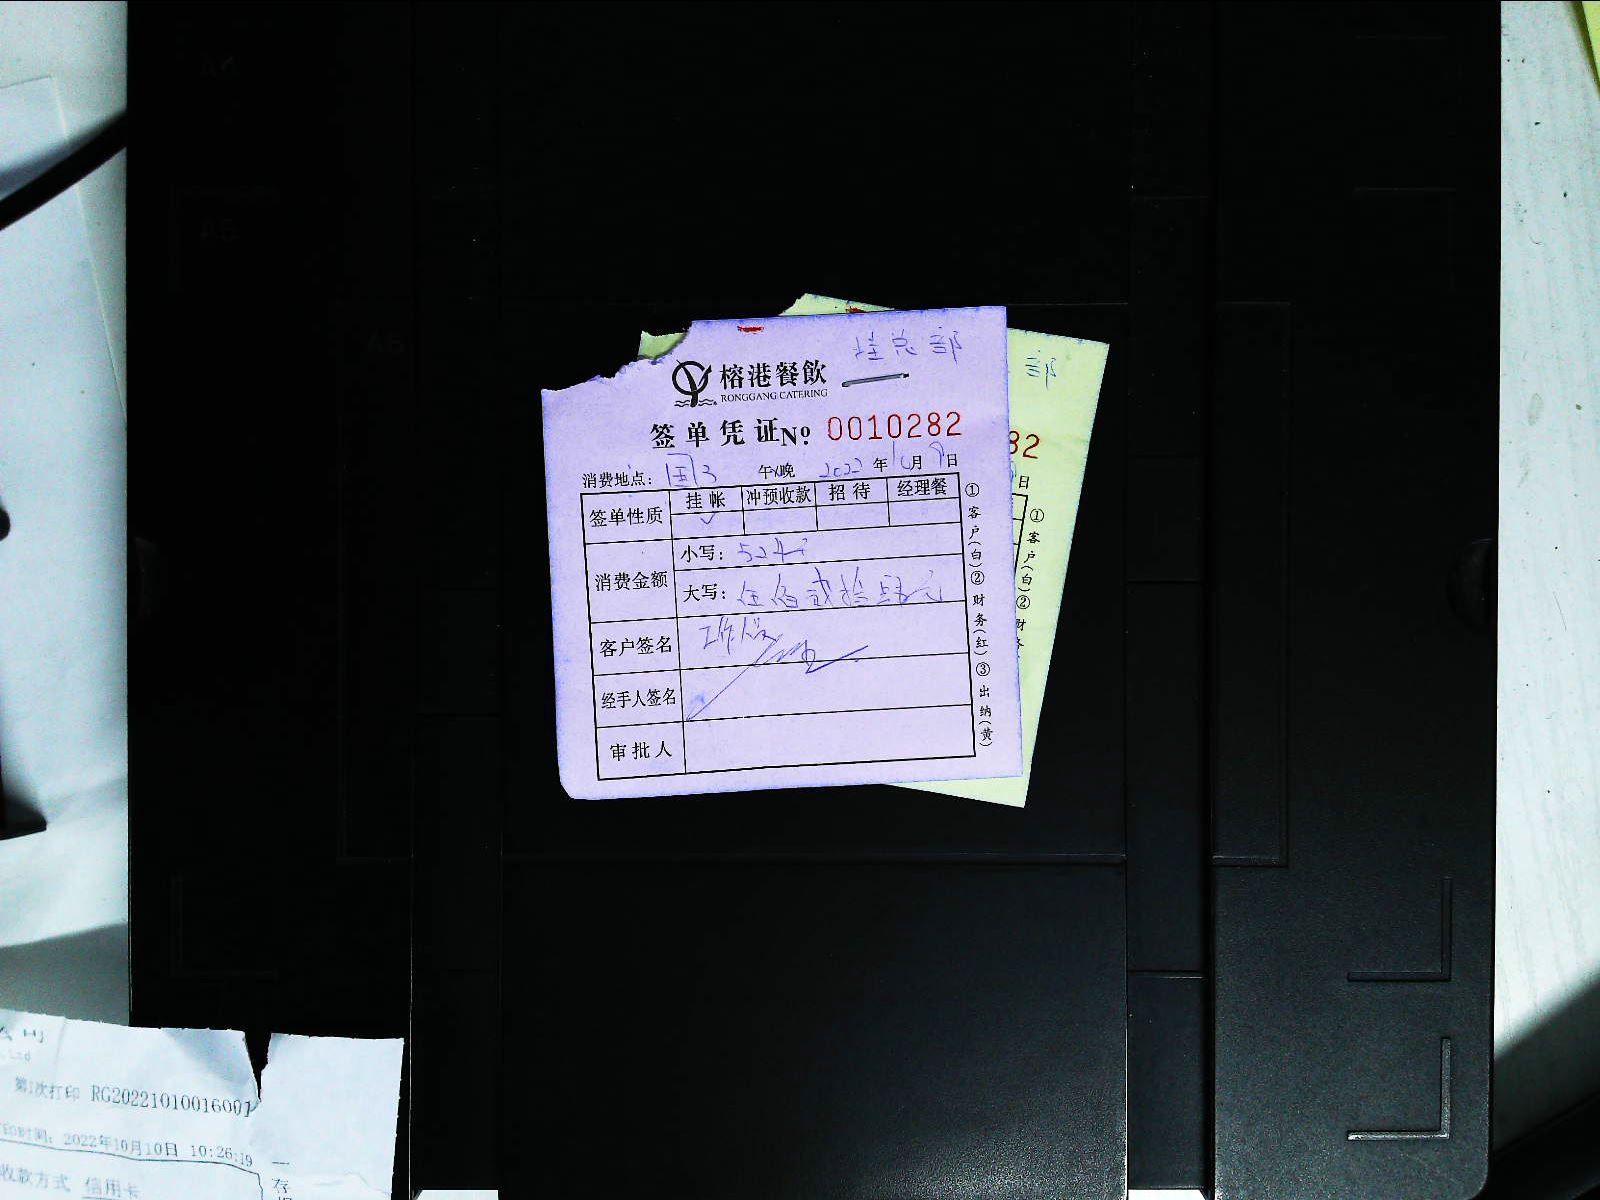 挂总部
榕港餐飲
RONGGANG CATERING
签单凭证№ 0010282
消费地点：国3 午/晚 2022年10月9日
签单性质 挂帐 冲预收款 招待 经理餐
✓
消费金额 小写：524元
大写：伍佰贰拾肆元
客户签名 工作餐
经手人签名
审批人
①客户(白)②财务(红)③出纳(黄)
部
82
日
①客户(白)②财务
第1次打印 RG20221010016001
印时间：2022年10月10日 10:26:19
收款方式 信用卡
存